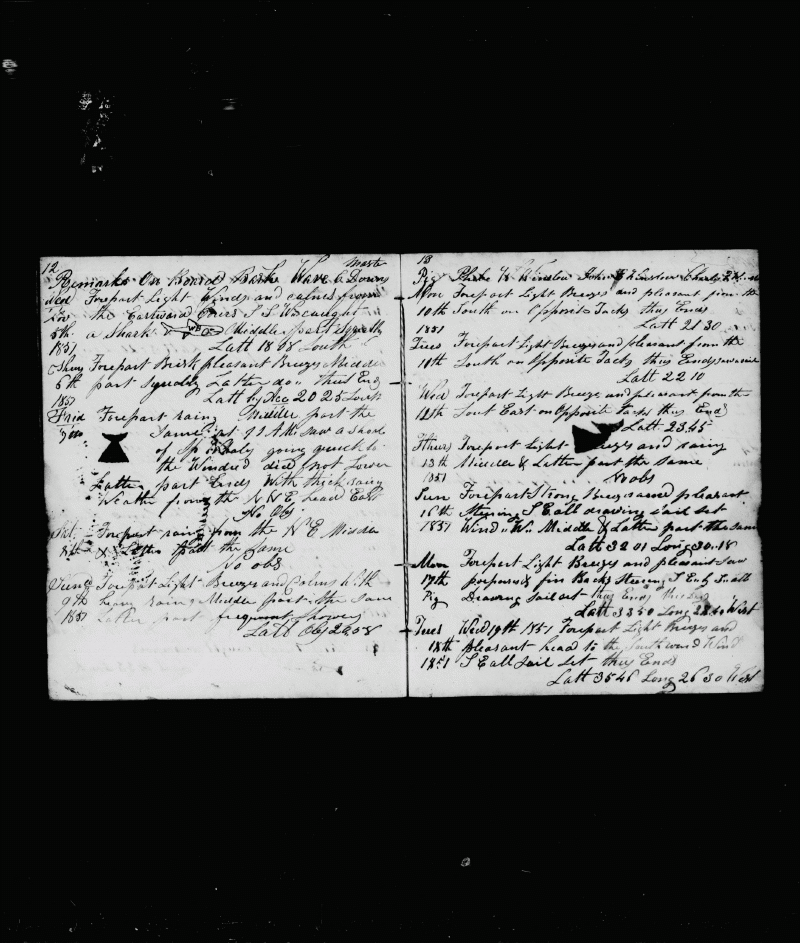 12
Remarks On Board Barke Wave C Downs Mastr
Wed Forepart Light winds and calmes from
Nov the Eastward S S W caught
5th a Shark WB Middle part Squally
1851 Latt 18 08 South
Thurs Forepart Brisk pleasant Breezes Middle
6th part Squally Latter do thus Ends
1851 Latt by 20 25 South
Frid Forepart rainy Middle part the
7th Same at 9 A M saw a
of going quick to
the Windred did not Lower
Latter part Ends With thick rainy
Weather from the N N E head East
No Obs
Sat Forepart rainy from the N E Middle
8th & Latter part the Same
No obs
Sund Forepart Light Breezes and Calms With
9th heavy rain Middle part the Same
1851 Latter part frequent Showers
Latt Obs 26.08
13
Winslow John Winslow Charles
Mon Forepart Light Breezes and pleasant from the
10th South on Opposite Tacks thus Ends
1851 Latt 21 30
Tues Forepart Light Breezes and pleasant from the
11th South on Opposite Tacks thus Ends
Latt 22 10
Wed Forepart Light Breezes and pleasant from the
12th Sout East on Opposite Tacks thus Ends
Latt 23.45
Thurs Forepart Light Breezes and rainy
13th Middle & Latter part the Same
1851 No obs
Sun Forepart Strong Breezes and pleasant
16th Steering S E all drawing sail set
1851 Wind W Middle & Latter part the same
Latt 32 01 Long 30.18
Mon Forepart Light Breezes and pleasant Saw
17th porpoises & fin Backs Steering S E by S all
Drawing Sail set thus Ends
Latt 33 50 Long West
Tues Wed 19th 1851 Forepart Light Breezes and
18th pleasant head to the Southward Wind
1851 S E all Sail Set thus Ends
Latt 35 46 Long 26 30 West